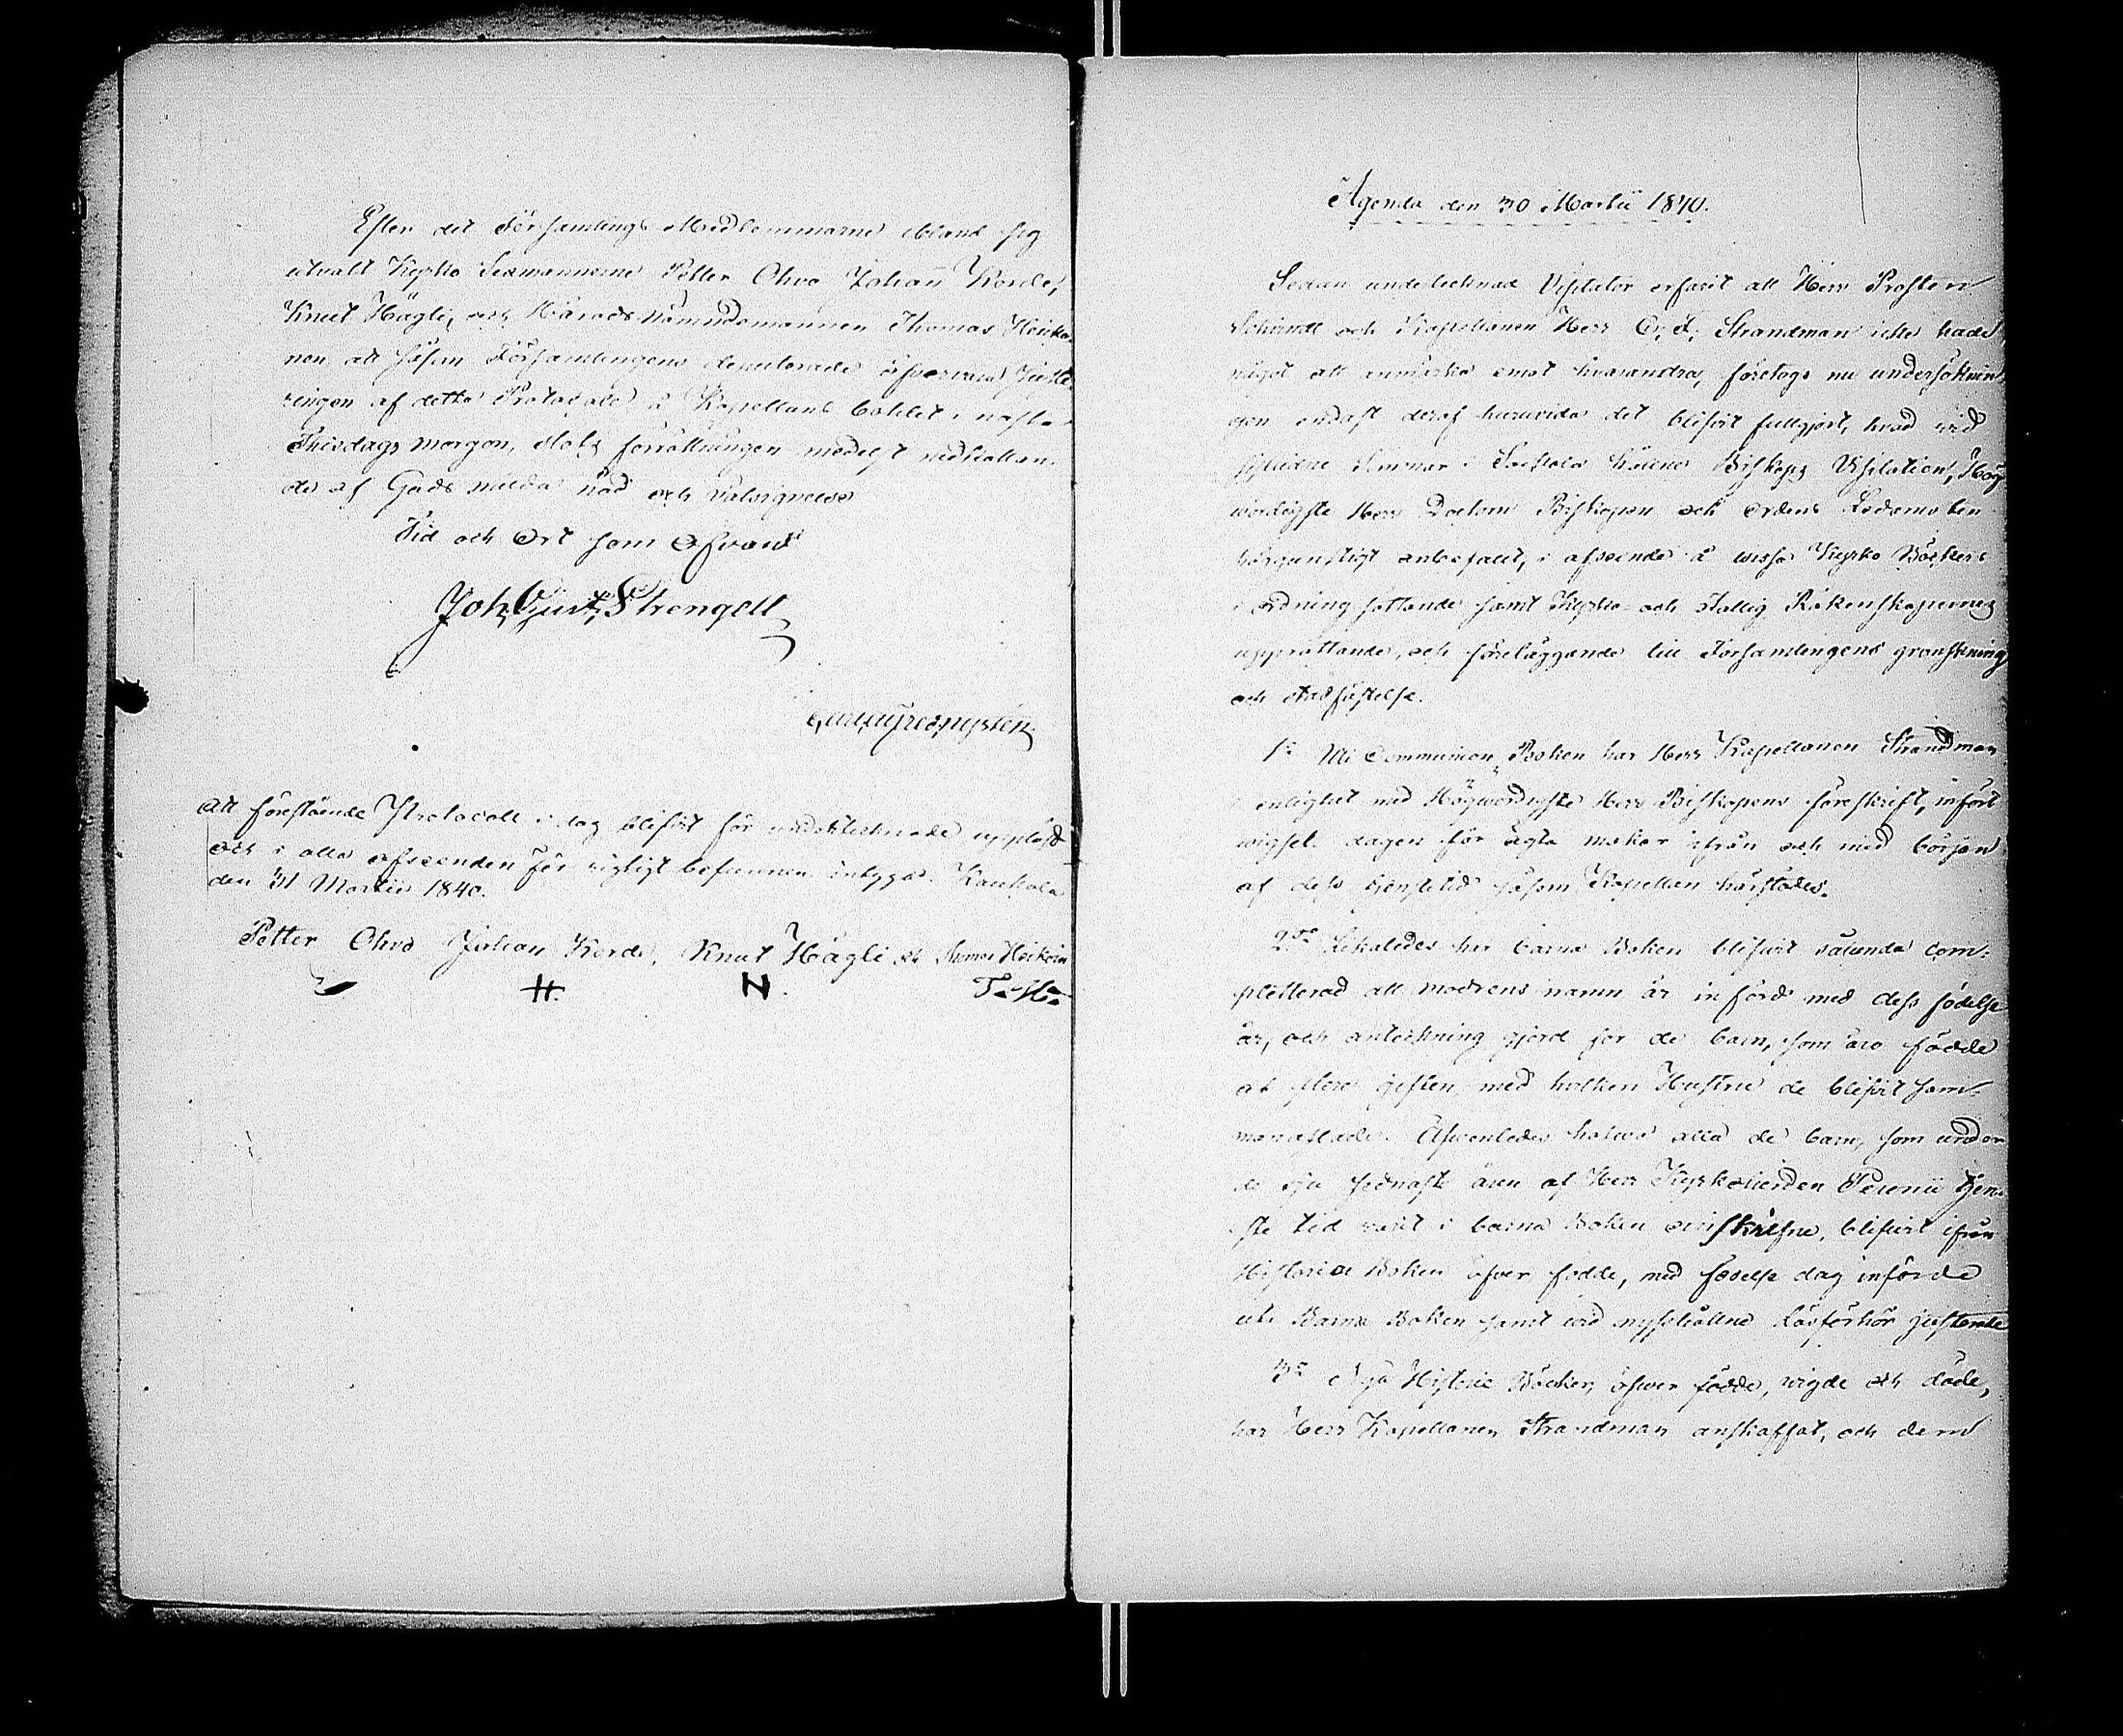 Efter det Församlings Medlemmarne ibland sig
utvalt Kyrko Sexmännerne Petter Ohvo Johan Korde,
Knut Hägli, och Härads Nämndemannen Thomas Heiko-
nen att såsom Församlingens deputerade öfvervara Juste-
ringen af detta Protocoll å Kapellans bohlet nästa
Thisdags morgon, slöts förrättningen medelst nedkallan-
de af Guds milda nåd och välsignelse
Tid och Ort som Ofvan
Joh. Gust. Strengell
Att förestående Protocoll i dag blifvit för undertecknade uppläst
och i alla afseenden för rigtigt befunnen intygas. Kaukola
den 31 Martii 1840.
Petter Ohvo Johan Korde, Knut Hägli och Thomas Heikoin
H. N. T. H.
Agenda den 30 Martii 1840.
Sedan undertecknad Visitator erfarit att Herr Prosten
och Kapellanen Herr C. F. Strandman icke hade
något att anmärka emot hvarandra, företogs nu undersöknin-
gen endast deraf huruvida det blifvit fullgjort, hvad vid
sistledne Sommar i hållne Biskops Visitation, Hög-
wördigste Herr Doctorn Biskopen och Ordens Ledamoten
högunstigt anbefalt, i afseende å wissa Kyrko Böckers
i ordning sättande samt Kyrko- och Fattig Räkenskapernes
upprättande, och föreläggande till Församlingens granskning
och stadfästelse.
1o Uti Communion Boken har Herr Kapellanen Strandman
i enlighet med Högwördigste Herr Biskopens föreskrift, infört
wigsel dagen för ägta makar ifrån och med början
af dess tjenstetid såsom Kapellan härstädes.
2do Likaledes har barna Boken blifvit sålunda com-
pletterad att modrens namn är införd med dess födelse
år, och anteckning gjord för de barn, som äro födde
af flere giften, med hvilken Hustru de blifvit sam-
manaflade. Äfvenledes hafva alla de barn, som under
de sju sednaste åren af Herr Kyrkoherden Peronii tjen-
ste tid varit i barna Boken oinskrefne, blifvit ifrån
Historiæ Boken öfver födde, med födelse dag införde
uti Barna Boken samt vid nysshållne Läsförhör justerade
3o Nya Historie Böcker, öfwer födde, wigde och döde,
har Herr Kapellanen Strandman anskaffat, och dem